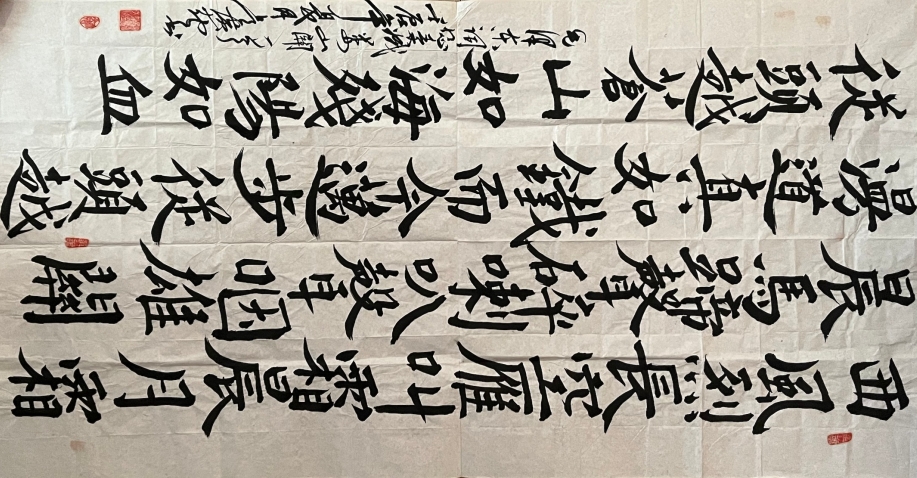 西風烈長空雁叫霜晨月霜
晨馬蹄聲碎喇叭聲咽雄關
漫道真如鐵而今邁步從頭越
從頭越蒼山如海殘陽如血
毛澤東詞憶秦娥婁山關一首